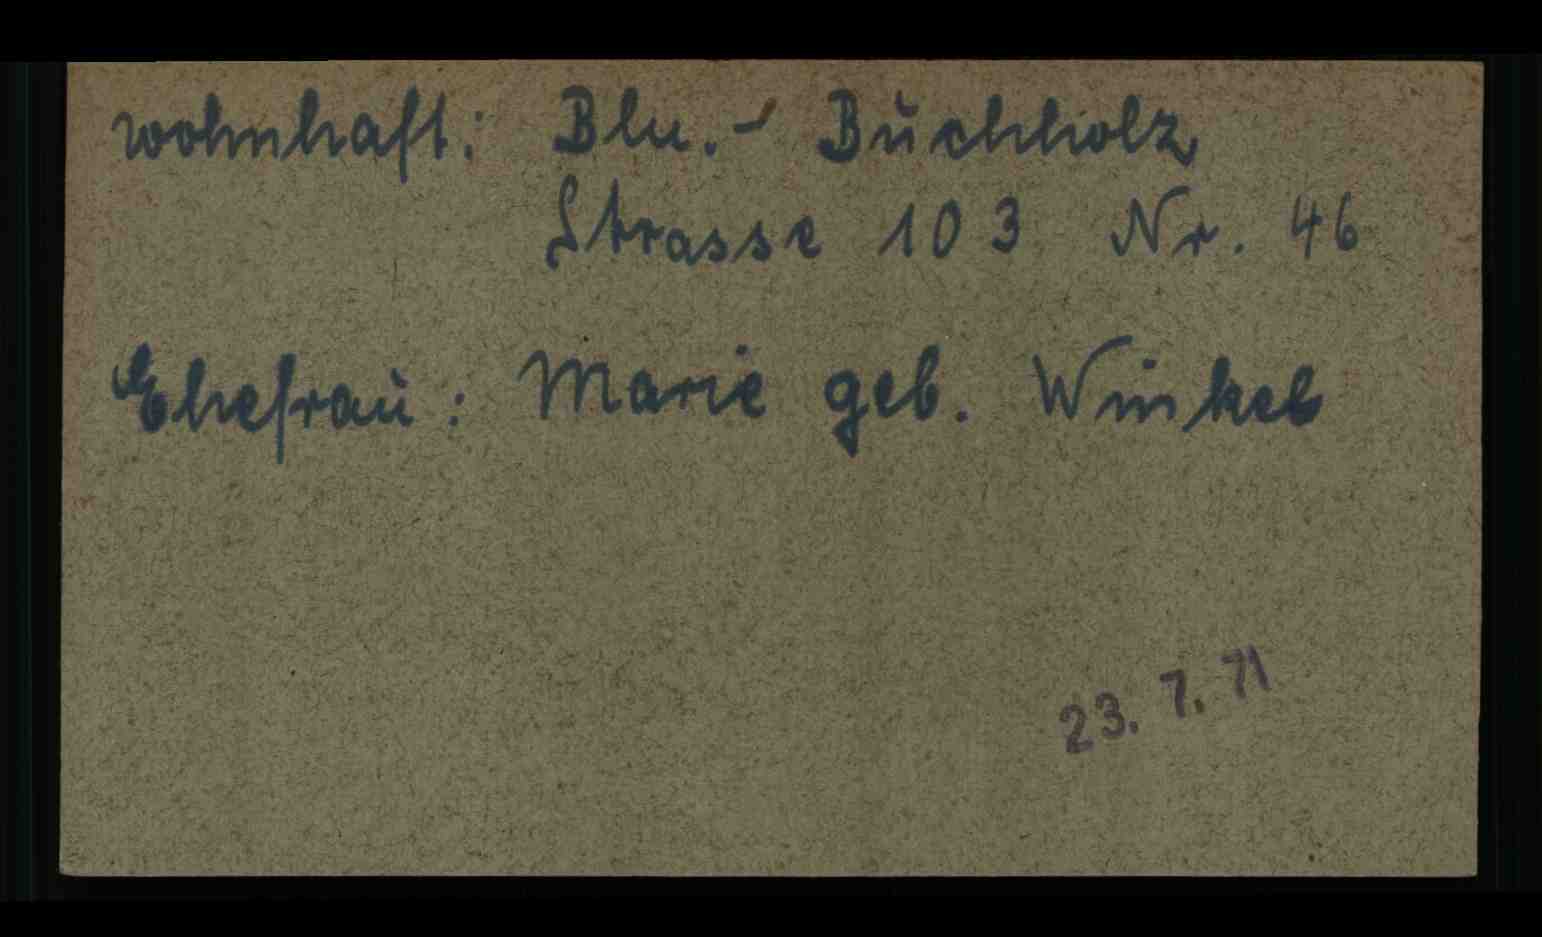 wohnhaft: Bln. - Buchholz
Strasse 103 Nr. 46
Ehefrau: Marie geb. Winkel
23. 7. 71